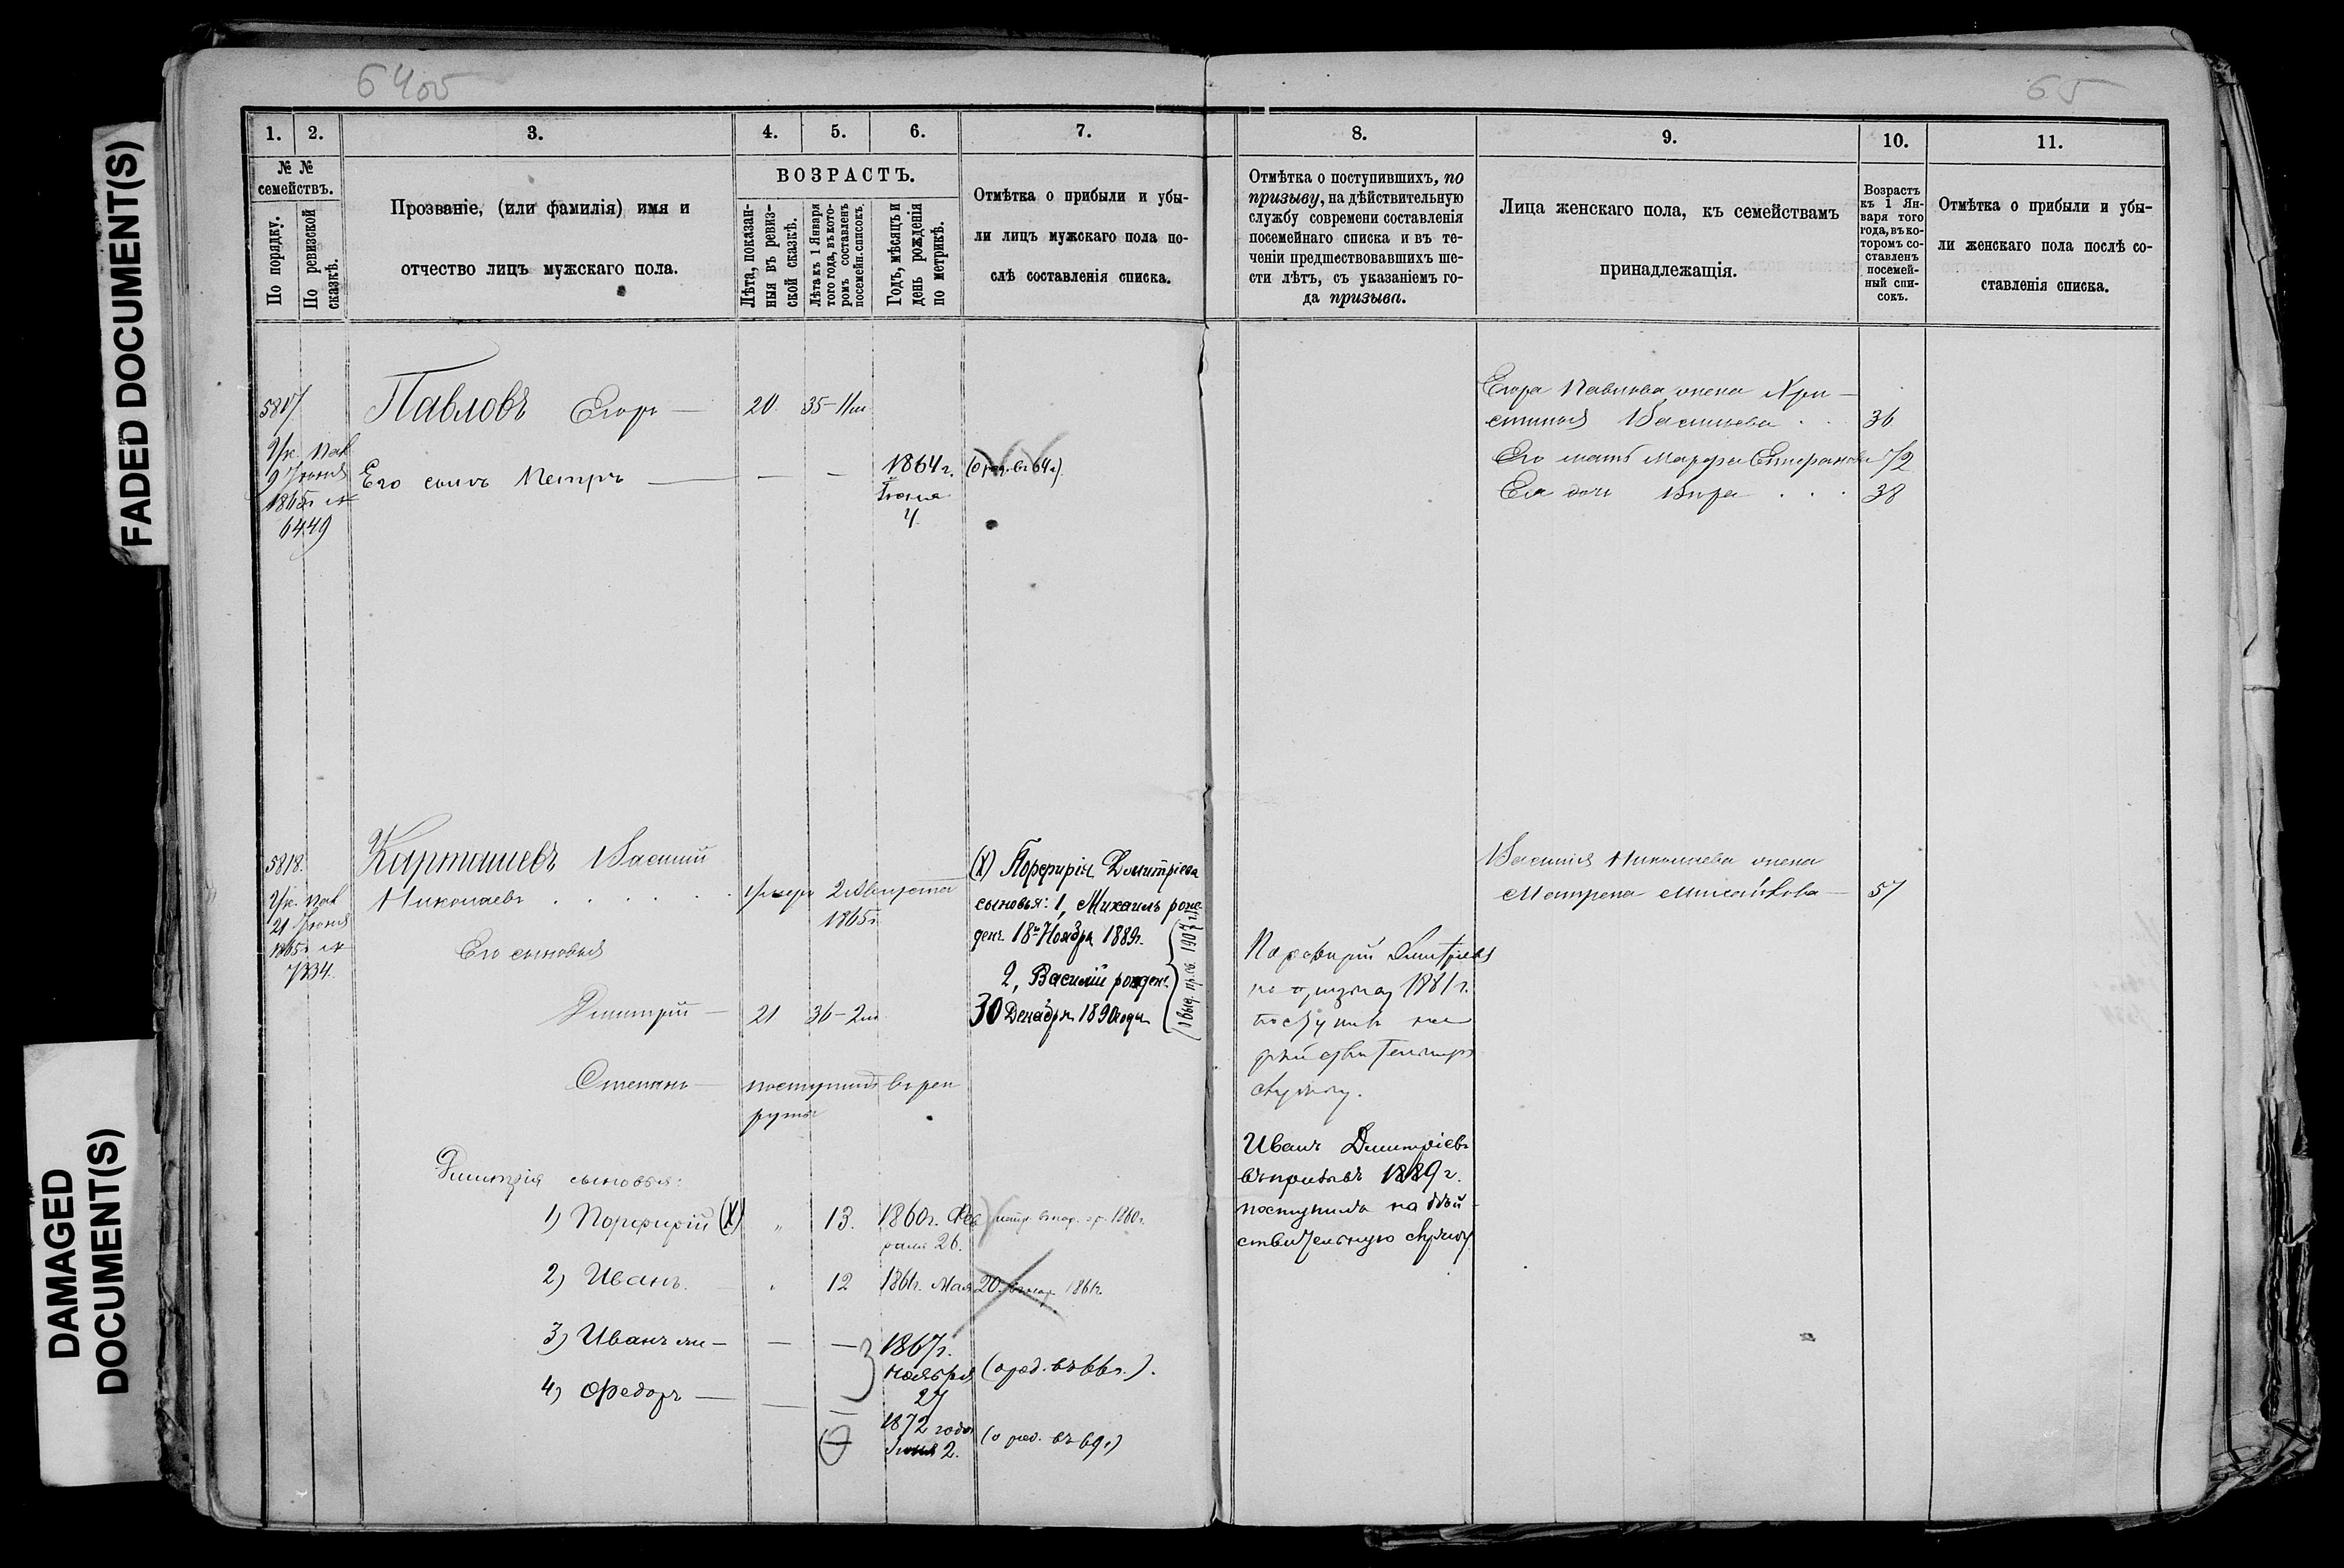 FADED DOCUMENT(S)
DAMAGED
DOCUMENT(S)
65
1.
2.
3.
4.
5.
6.
7.
№ №
семействъ.
По порядку.
По ревизской
сказкѣ.
Прозваніе, (или фамилія) имя и
отчество лицъ мужскаго пола.
ВОЗРАСТЪ.
Лѣта, показан-
ныя въ ревиз-
ской сказкѣ.
Лѣта къ 1 Января
того года, въ кото-
ромъ составленъ
посемейн. списокъ.
Годъ, мѣсяцъ и
день рожденія
по метрикѣ.
Отмѣтка о прибыли и убы-
ли лицъ мужскаго пола по-
слѣ составленія списка.
8.
9.
10.
11.
Отмѣтка о поступившихъ, по
призыву, на дѣйствительную
службу современи составленія
посемейнаго списка и въ те-
ченіи предшествовавшихъ ше-
сти лѣтъ, съ указаніемъ го-
да призыва.
Лица женскаго пола, къ семействамъ
принадлежащія.
Возрастъ
къ 1 Ян-
варя того
года, въ ко-
торомъ со-
ставленъ
посемей-
ный спи-
сокъ.
Отмѣтка о прибыли и убы-
ли женскаго пола послѣ со-
ставленія списка.
5817.
Ук. Пал
9 Іюня
1865 г. №
6449
Павловъ Егоръ —
20
35-11м
Его сынъ Петръ —
1864 г.
Іюня
4.
Егора Павлова жена Хри-
стинья Васильева
36
Его мать Марфа Степанова
72
Ея дочь Вѣра
38
5818.
Ук. Пал
21 Іюня
1865 г. №
7334.
Карташевъ Василий
Николаевъ
умеръ 2 Августа
1865 г.
Его сыновья
Дмитрій —
21
36-2м
Степанъ —
поступилъ въ рек
руты
Дмитрія сыновья:
1) Порфирій (X)
13.
1860 г. Фев
раля 26.
2) Иванъ.
12
1861 г. Мая 20.
3) Иванъ —
1867 г.
ноября
27
(о род. въ 66 г.).
4) Федоръ —
1872 года
Іюня 2.
(о род. въ 69 г.)
(X) Порфирія Дмитріева
сыновья: 1, Михаилъ рож-
денъ 18го Ноября 1889 г.
2, Василій рожден.
30 Декабря 1890 года
Порфирій Дмитріевъ
по призыву 1881 г.
поступилъ на
дѣйствительную
службу.
Иванъ Дмитріевъ
въ призывъ 1889 г.
поступилъ на дѣй-
ствительную службу
Василія Николаева жена
Матрена Михайлова —
57